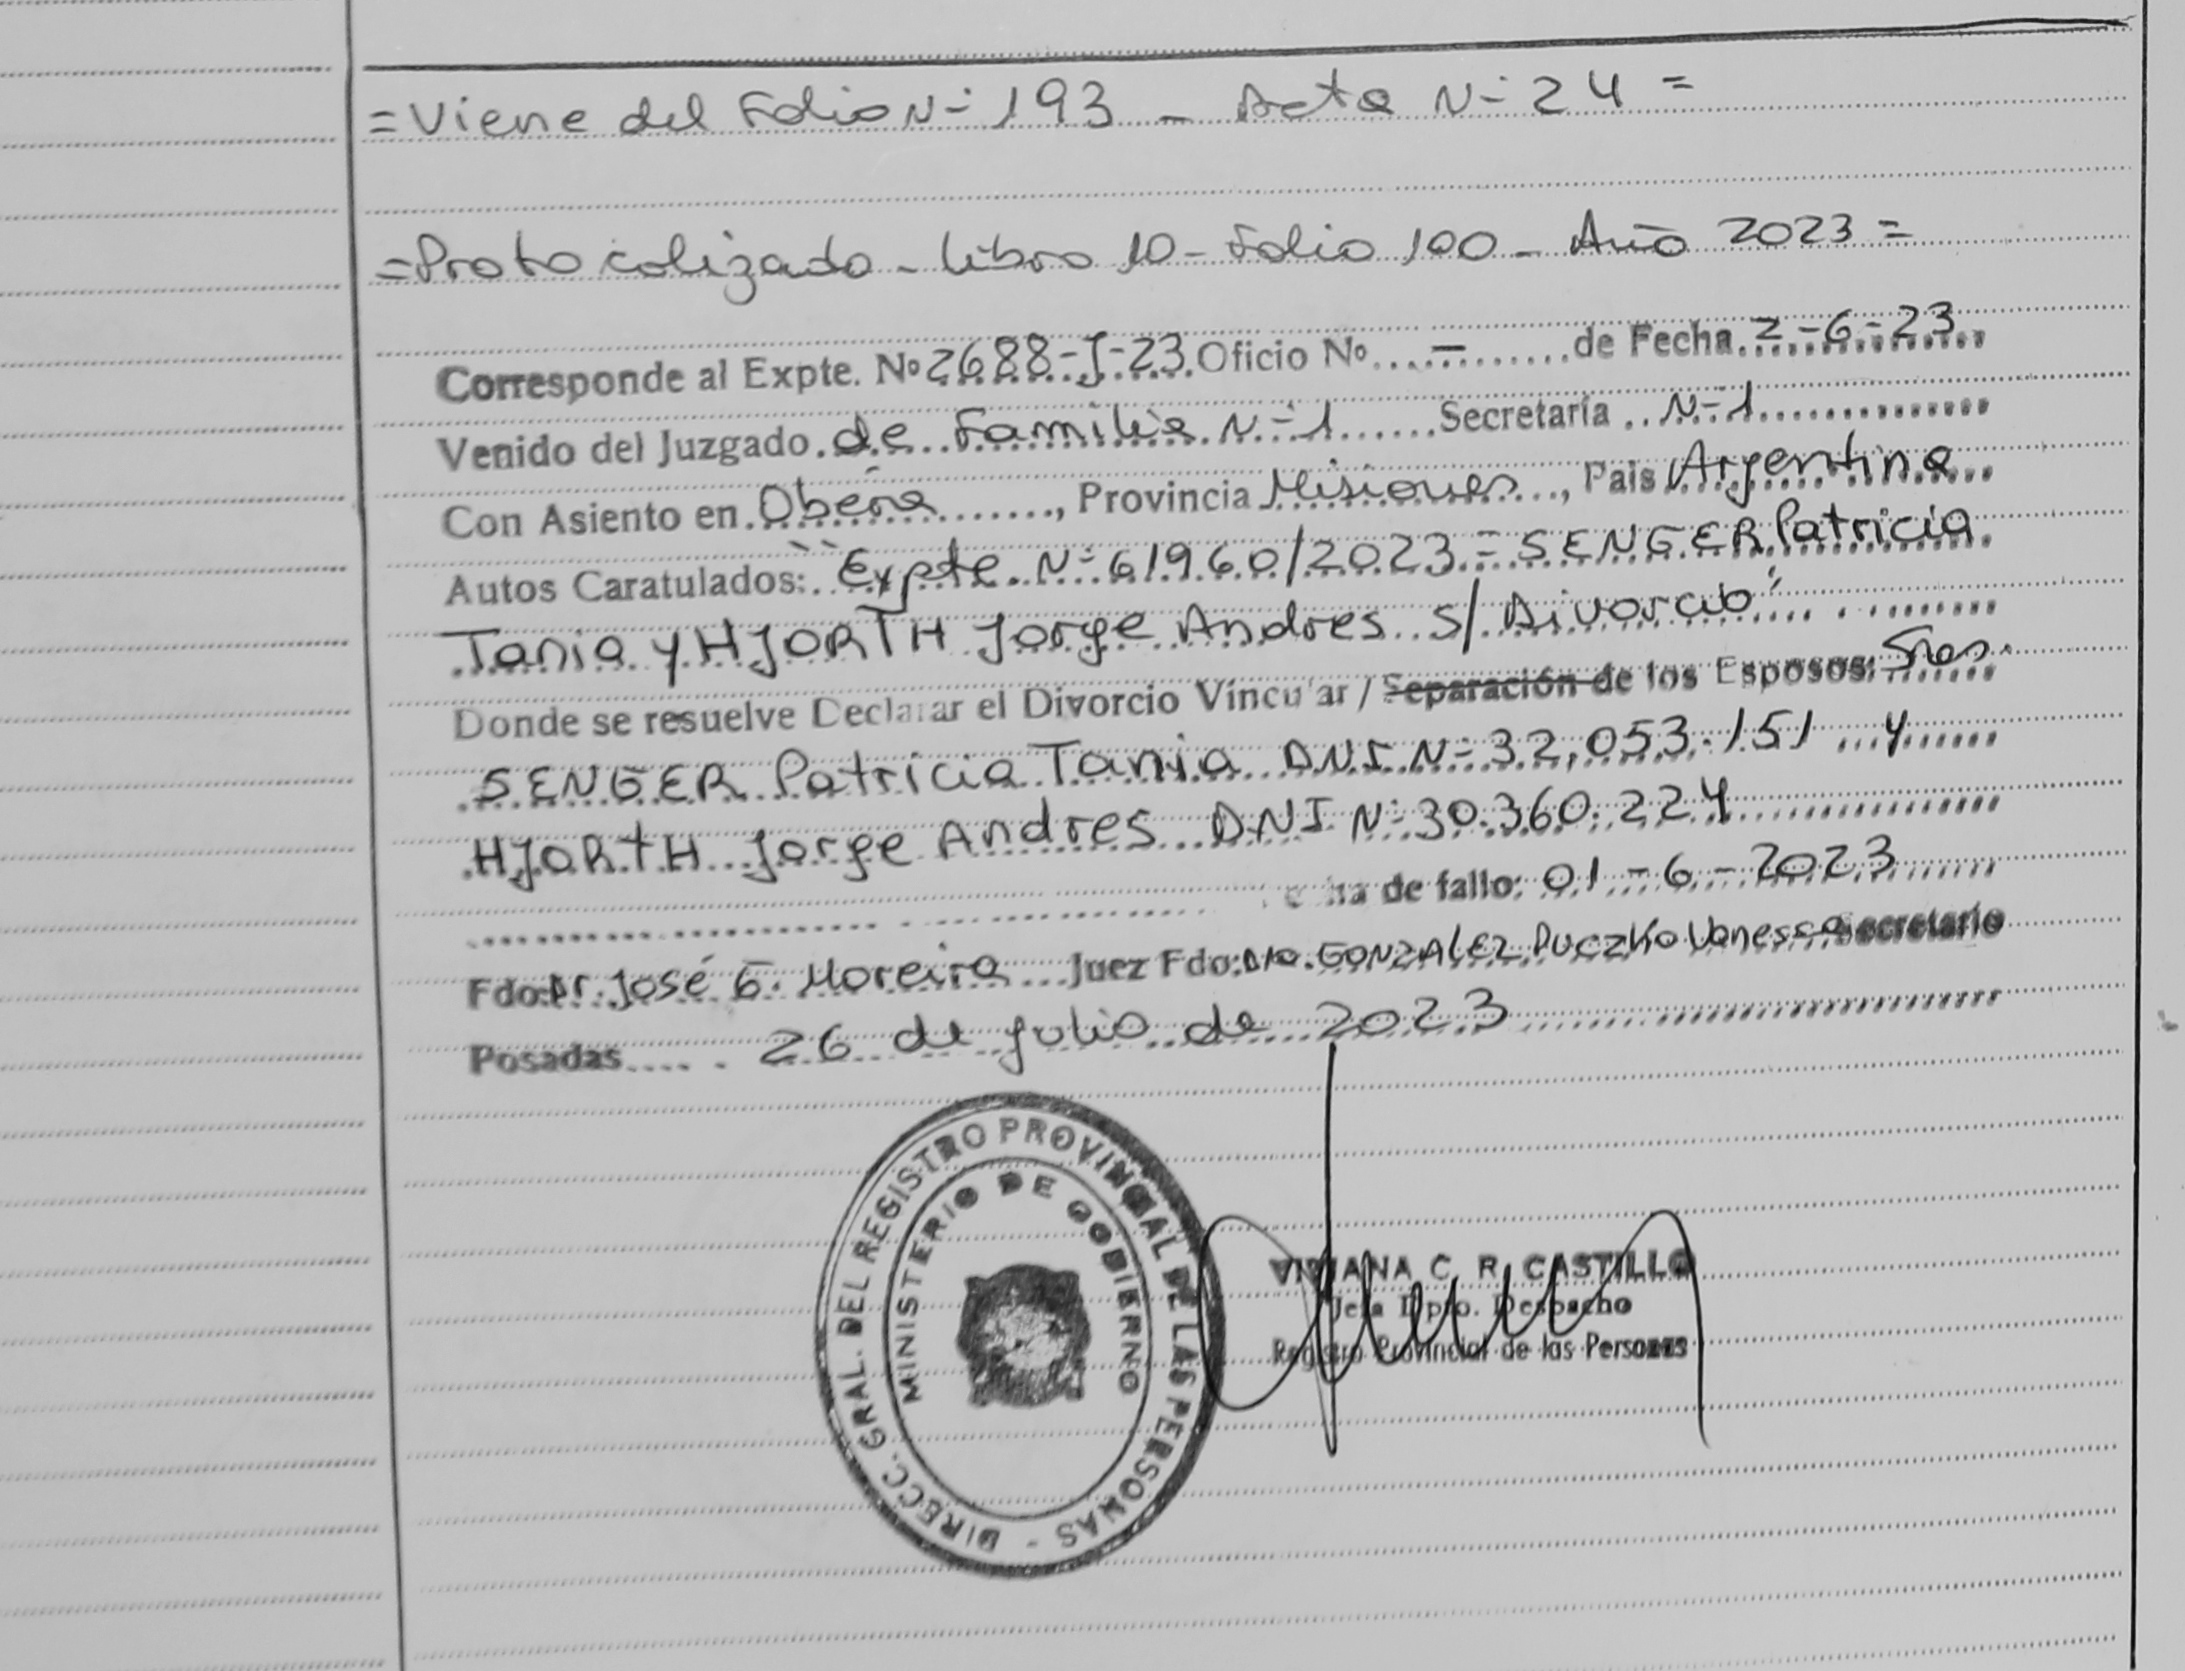 =Viene del Folio Nº 193 - Acta Nº 24=
=Protocolizado - Libro 10 - Folio 100 - Año 2023=
Corresponde al Expte. Nº 2688-J-23 Oficio Nº...-.......de Fecha. 2-6-23
Venido del Juzgado. de Familia Nº 1 ......Secretaría .. Nº 1
Con Asiento en Oberá ......., Provincia Misiones..., Pais Argentina
Autos Caratulados: "Expte. Nº 61960/2023 = SENGER Patricia
Tania y HJORTH Jorge Andres s/ Divorcio"
Donde se resuelve Declarar el Divorcio Víncular / Separación de los Esposos: Sres.
SENGER Patricia Tania DNI Nº 32,053.151 y
HJORTH Jorge Andres DNI Nº 30.360.224
de fallo: 01-6-2023
Fdo: Dr. José G. Moreira ... Juez Fdo: Dra. GONZALEZ PUCZKO Vanessa Secretario
Posadas.... 26 de julio de 2023
DIRECC. GRAL. DEL REGISTRO PROVINCIAL DE LAS PERSONAS -
MINISTERIO DE GOBIERNO
VIVIANA C. R. CASTILLO
Jefa Dpto. Despacho
Registro Provincial de las Personas